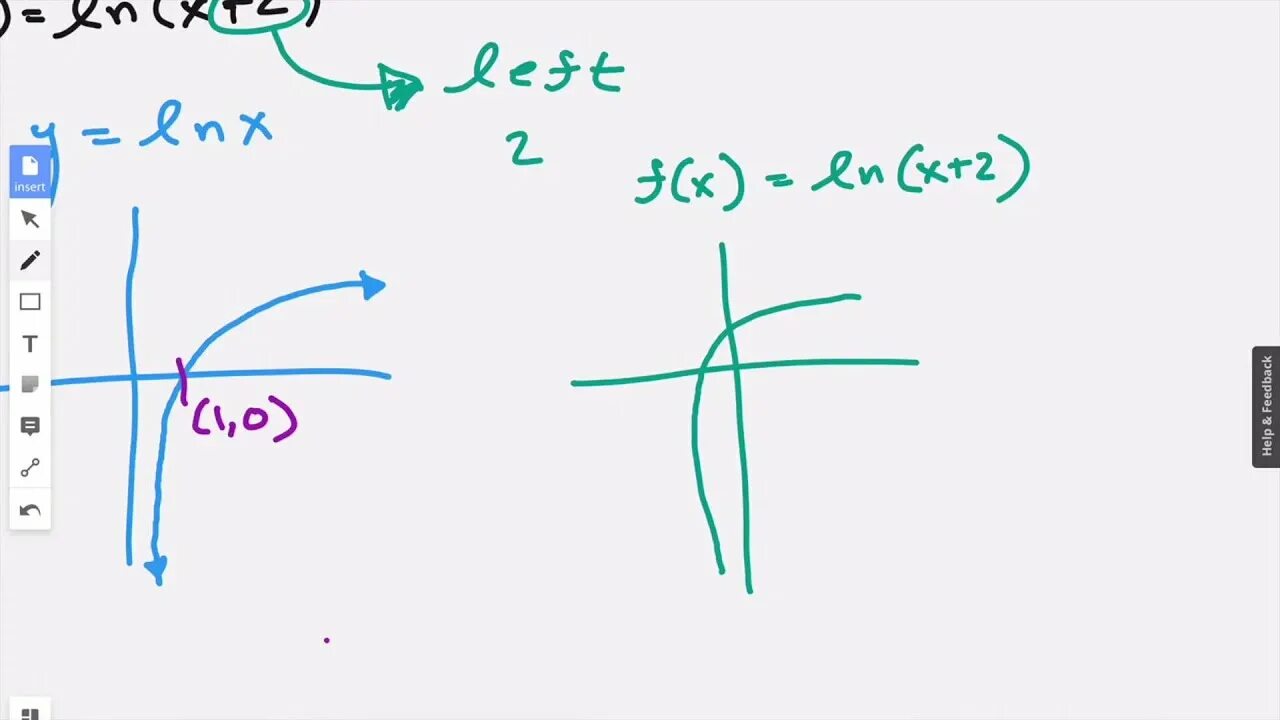 ) = ln(x+2)
left
y = ln x
2
f(x) = ln(x+2)
insert
T
(1,0)
Help & Feedback